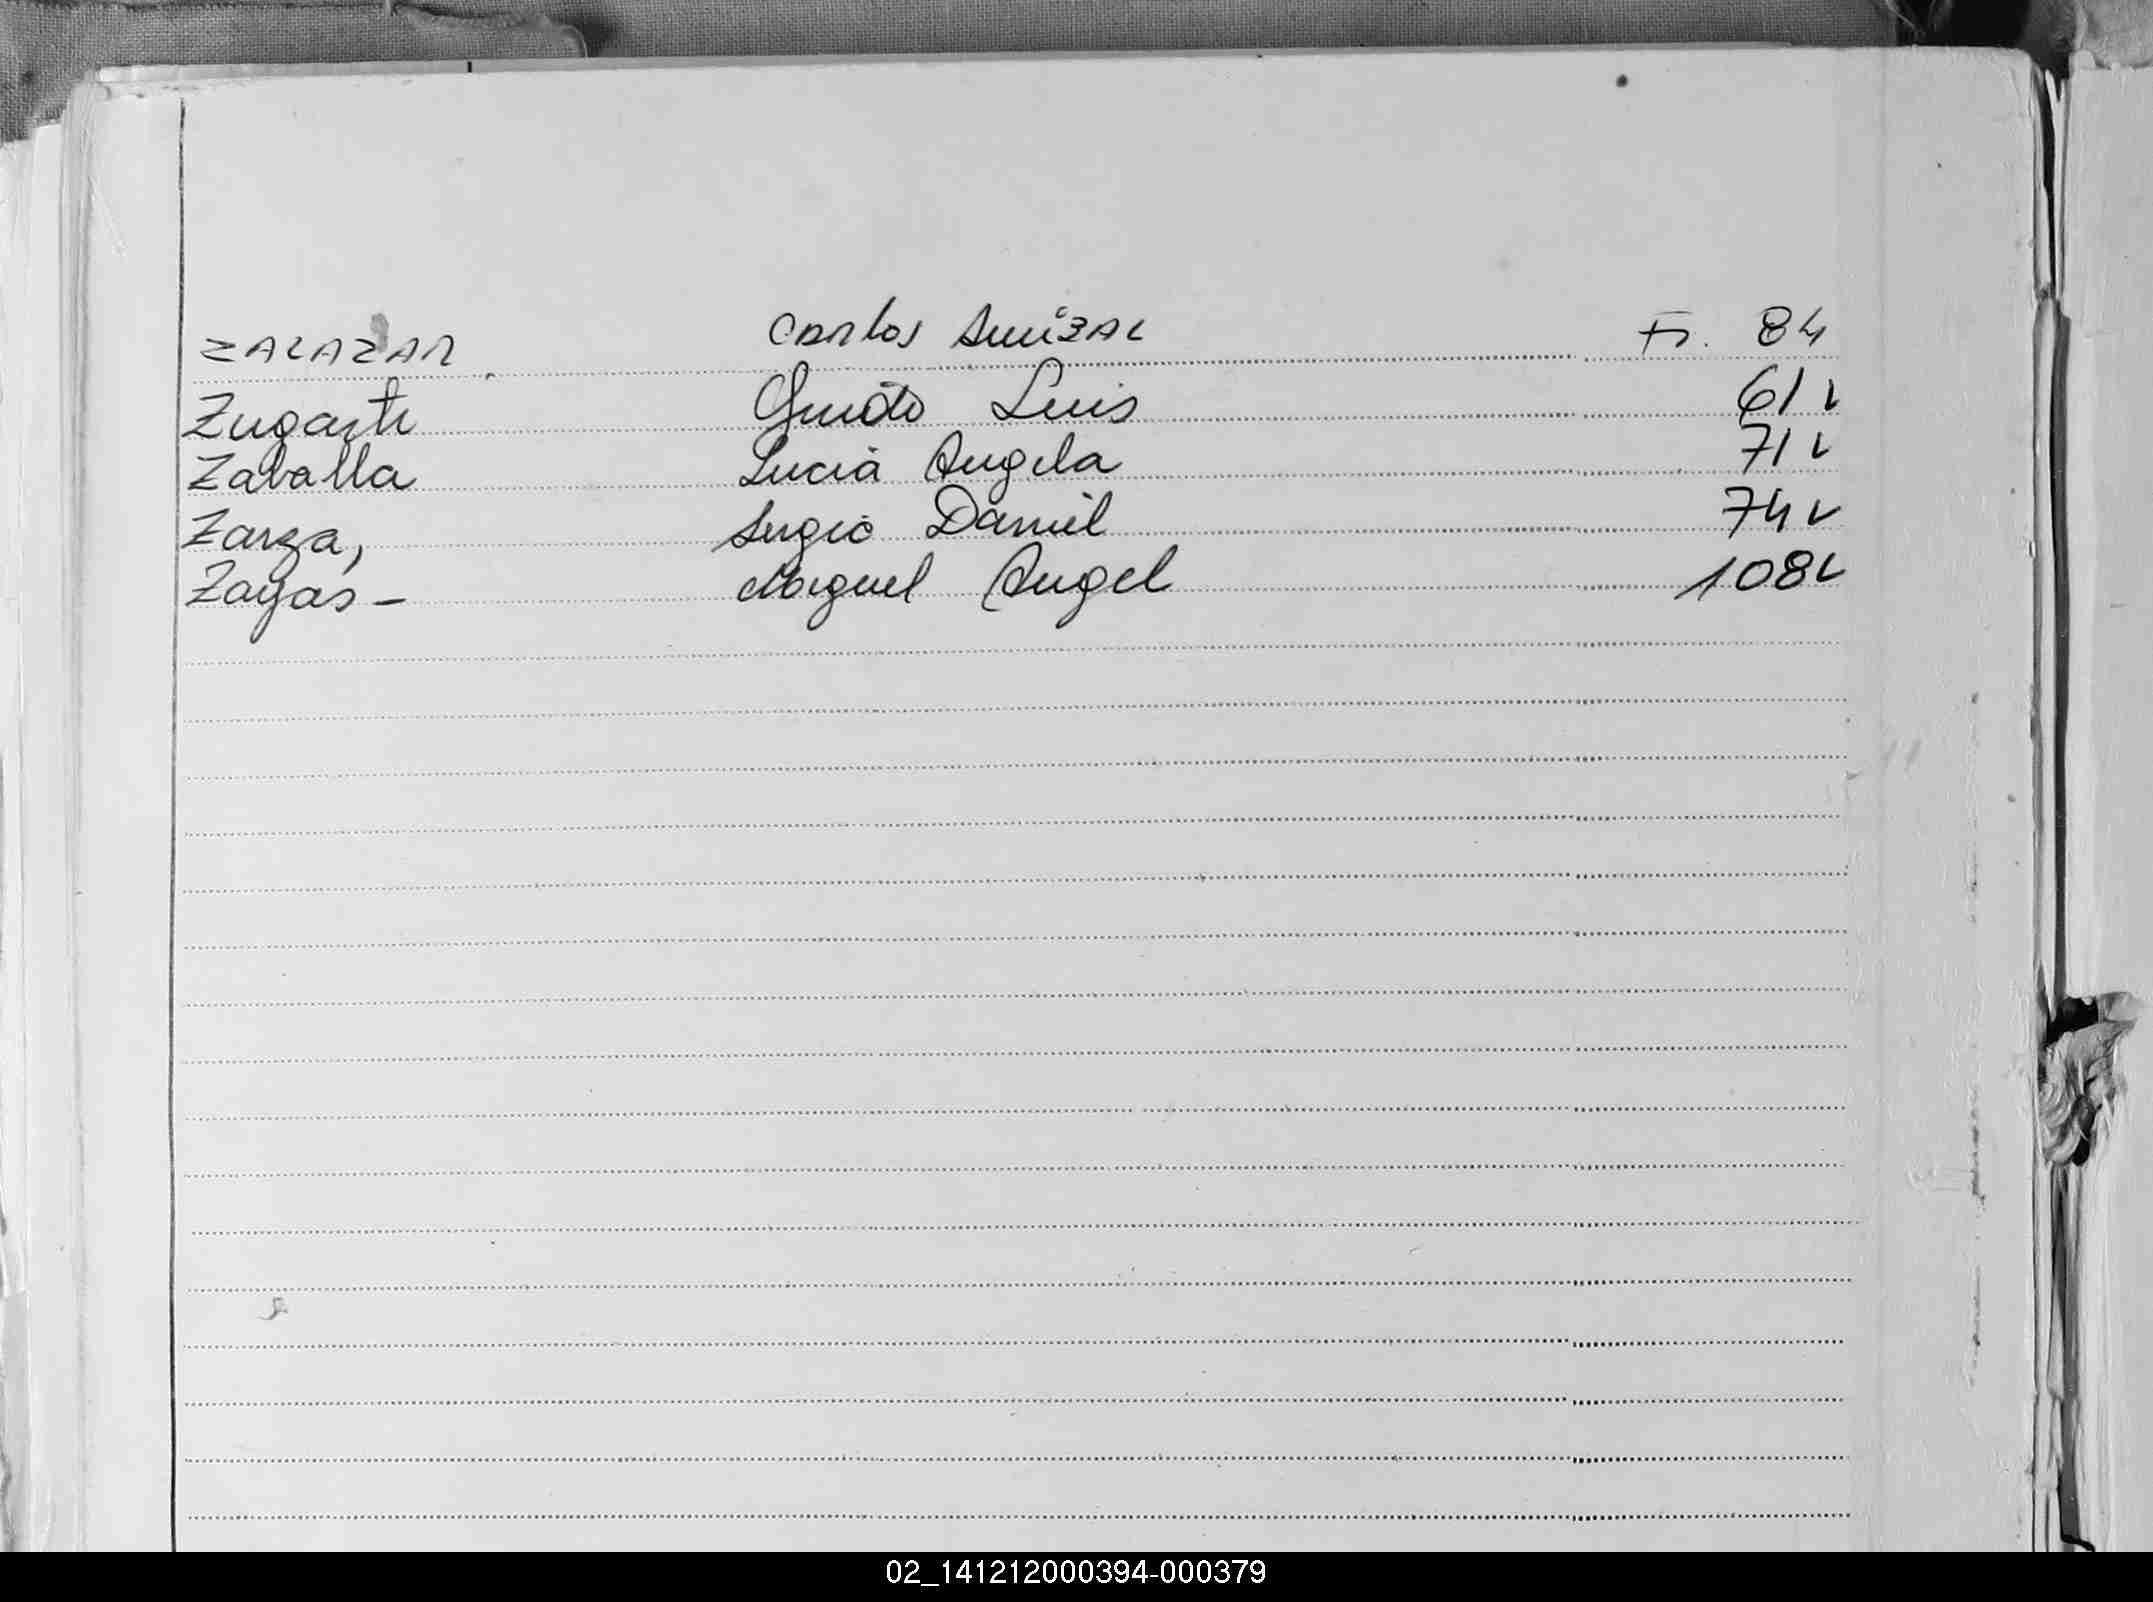 ZALAZAR Carlos Anizal Fs. 84
Zugasti Guido Luis 61 v
Zaballa Lucia Angela 71 v
Zarza, Sergio Daniel 74 v
Zayas - Miguel Angel 108 v
02_141212000394-000379